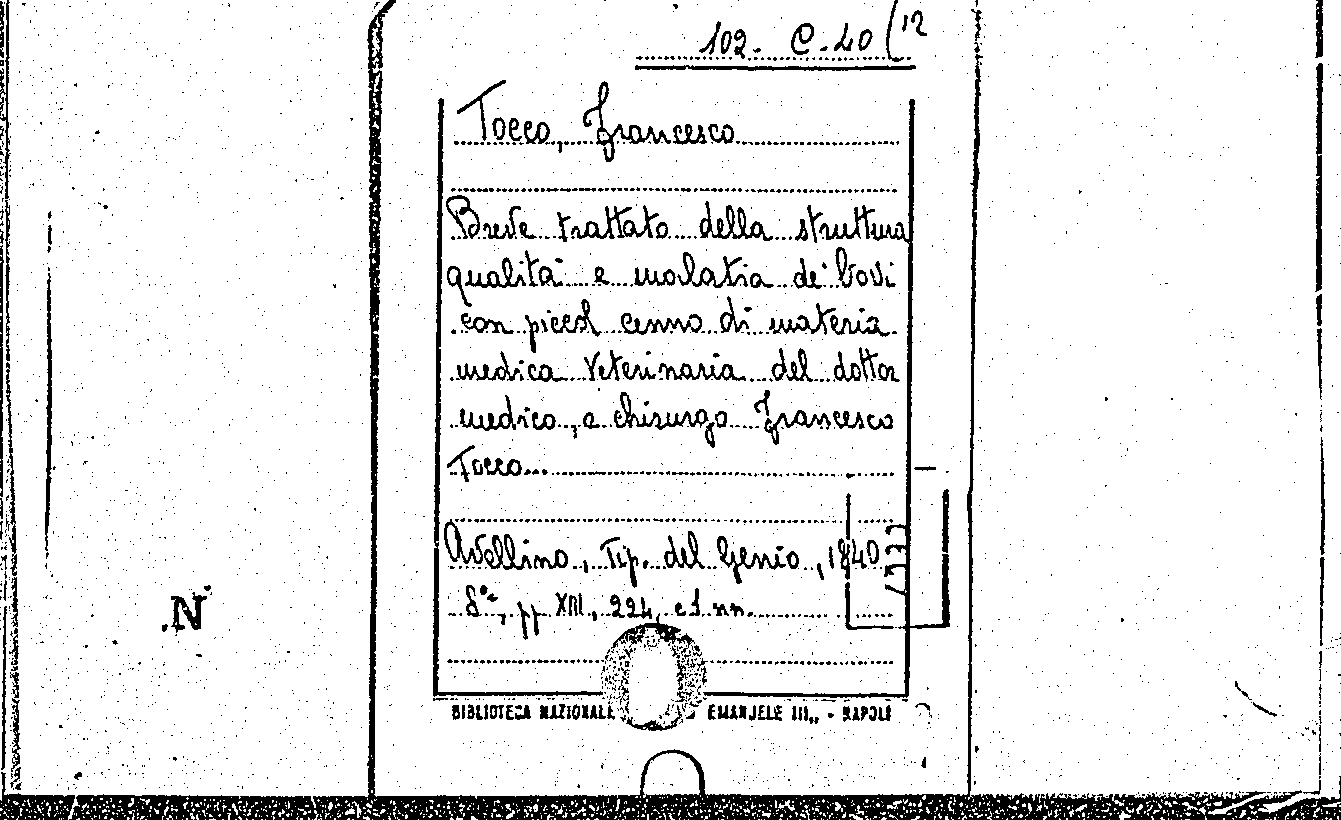 102. C. 40 (12
Tocco, Francesco
Breve trattato della struttura
qualità e malatia de' bovi
con piccol cenno di materia
medica veterinaria del dottor
medico, e chirurgo Francesco
Tocco...
Avellino, Tip. del Genio, 1840
8°, pp XIII, 224, e 1 nn.
N
BIBLIOTECA NAZIONALE EMANUELE III,, - NAPOLI